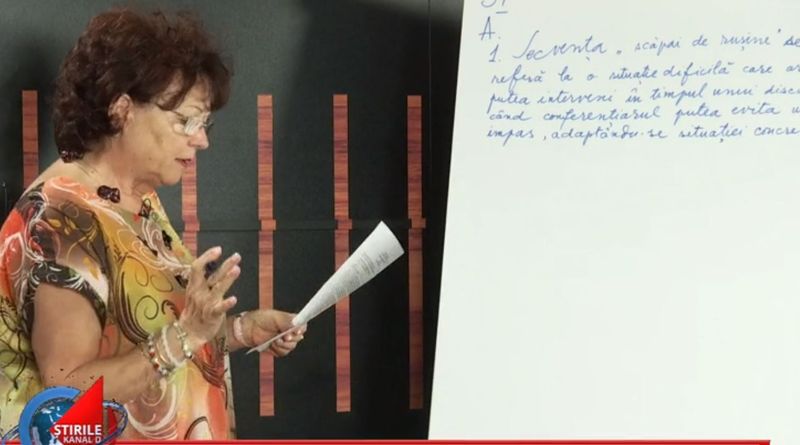 A.
1. Secvența „scăpai de rușine" se
refesă la o situație dificilă care ar
putea interveni în timpul unui disc
când conferențiarul putea evita u
impas, adaptându-se situației concre
STIRILE
KANAL D